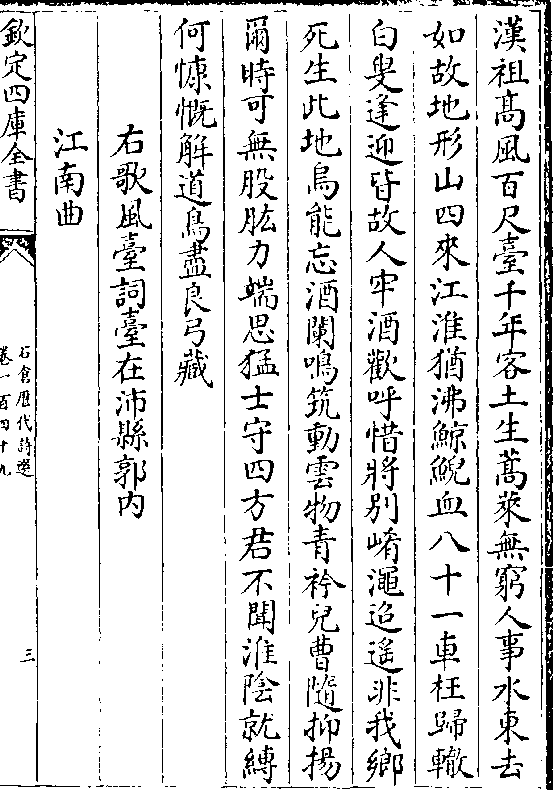 漢祖髙風百尺臺千年客土生蒿萊無窮人事水東去
如故地形山四來江淮猶沸鯨鯢血八十一車枉歸轍
白叟逢迎皆故人牢酒歡呼惜將别崤澠迢遥非我鄉
死生此地烏能忘酒闌鳴筑動雲物青衿兒曹隨抑揚
爾時可無股肱力端思猛士守四方君不聞淮陰就縛
何慷慨解道鳥盡良弓藏
右歌風臺詞臺在沛縣郭内
江南曲
欽定四庫全書
石倉歴代詩選
卷一百四十九
三